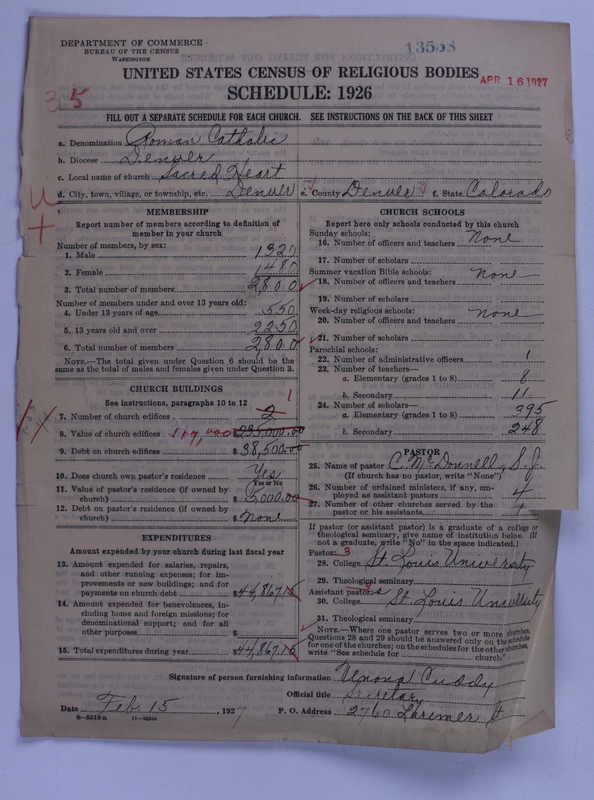 DEPARTMENT OF COMMERCE
BUREAU OF THE CENSUS
WASHINGTON
13558
UNITED STATES CENSUS OF RELIGIOUS BODIES
APR 16 1927
SCHEDULE: 1926
35
FILL OUT A SEPARATE SCHEDULE FOR EACH CHURCH. SEE INSTRUCTIONS ON THE BACK OF THIS SHEET
a. Denomination Roman Catholic
b. Diocese Denver
c. Local name of church Sacred Heart
d. City, town, village, or township, etc. Denver e. County Denver f. State Colorado
MEMBERSHIP
Report number of members according to definition of
member in your church
Number of members, by sex:
1. Male 1320
2. Female 1480
3. Total number of members 2800
Number of members under and over 13 years old:
4. Under 13 years of age 550
5. 13 years old and over 2250
6. Total number of members 2800
NOTE.—The total given under Question 6 should be the
same as the total of males and females given under Question 3.
CHURCH BUILDINGS
See instructions, paragraphs 10 to 12
1
7. Number of church edifices 2
8. Value of church edifices $235,000.00
9. Debt on church edifices $38,500.00
10. Does church own pastor's residence Yes
Yes or No
11. Value of pastor's residence (if owned by
church) $5000.00
12. Debt on pastor's residence (if owned by
church) $None
EXPENDITURES
Amount expended by your church during last fiscal year
13. Amount expended for salaries, repairs,
and other running expenses; for im-
provements or new buildings; and for
payments on church debt $44,867.15
14. Amount expended for benevolences, in-
cluding home and foreign missions; for
denominational support; and for all
other purposes $
15. Total expenditures during year $44,867.15
CHURCH SCHOOLS
Report here only schools conducted by this church
Sunday schools:
16. Number of officers and teachers None
17. Number of scholars
Summer vacation Bible schools: None
18. Number of officers and teachers
19. Number of scholars
Week-day religious schools: None
20. Number of officers and teachers
21. Number of scholars
Parochial schools:
22. Number of administrative officers 1
23. Number of teachers—
a. Elementary (grades 1 to 8) 8
b. Secondary 11
24. Number of scholars—
a. Elementary (grades 1 to 8) 295
b. Secondary 248
PASTOR
25. Name of pastor C. McDonnell, S.J.
(If church has no pastor, write "None")
26. Number of ordained ministers, if any, em-
ployed as assistant pastors 4
27. Number of other churches served by the
pastor or his assistants 1
If pastor (or assistant pastor) is a graduate of a college or
theological seminary, give name of institution below. (If
not a graduate, write "No" in the space indicated.)
Pastor: 3
28. College St. Louis University
29. Theological seminary
Assistant pastor:
30. College St. Louis University
31. Theological seminary
NOTE.—Where one pastor serves two or more churches,
Questions 28 and 29 should be answered only on the schedule
for one of the churches; on the schedules for the other churches,
write "See schedule for church"
Signature of person furnishing information Cuddy
Official title Secretary
Date Feb 15, 1927 P. O. Address 2760 Larimer St
8—5518a